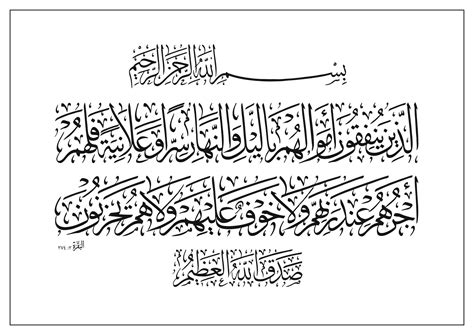 بِسْمِ اللَّهِ الرَّحْمَٰنِ الرَّحِيمِ
الَّذِينَ يُنفِقُونَ أَمْوَالَهُم بِاللَّيْلِ وَالنَّهَارِ سِرًّا وَعَلَانِيَةً فَلَهُمْ
أَجْرُهُمْ عِندَ رَبِّهِمْ وَلَا خَوْفٌ عَلَيْهِمْ وَلَا هُمْ يَحْزَنُونَ
البقرة: ٢٧٤
صَدَقَ اللَّهُ الْعَظِيمُ